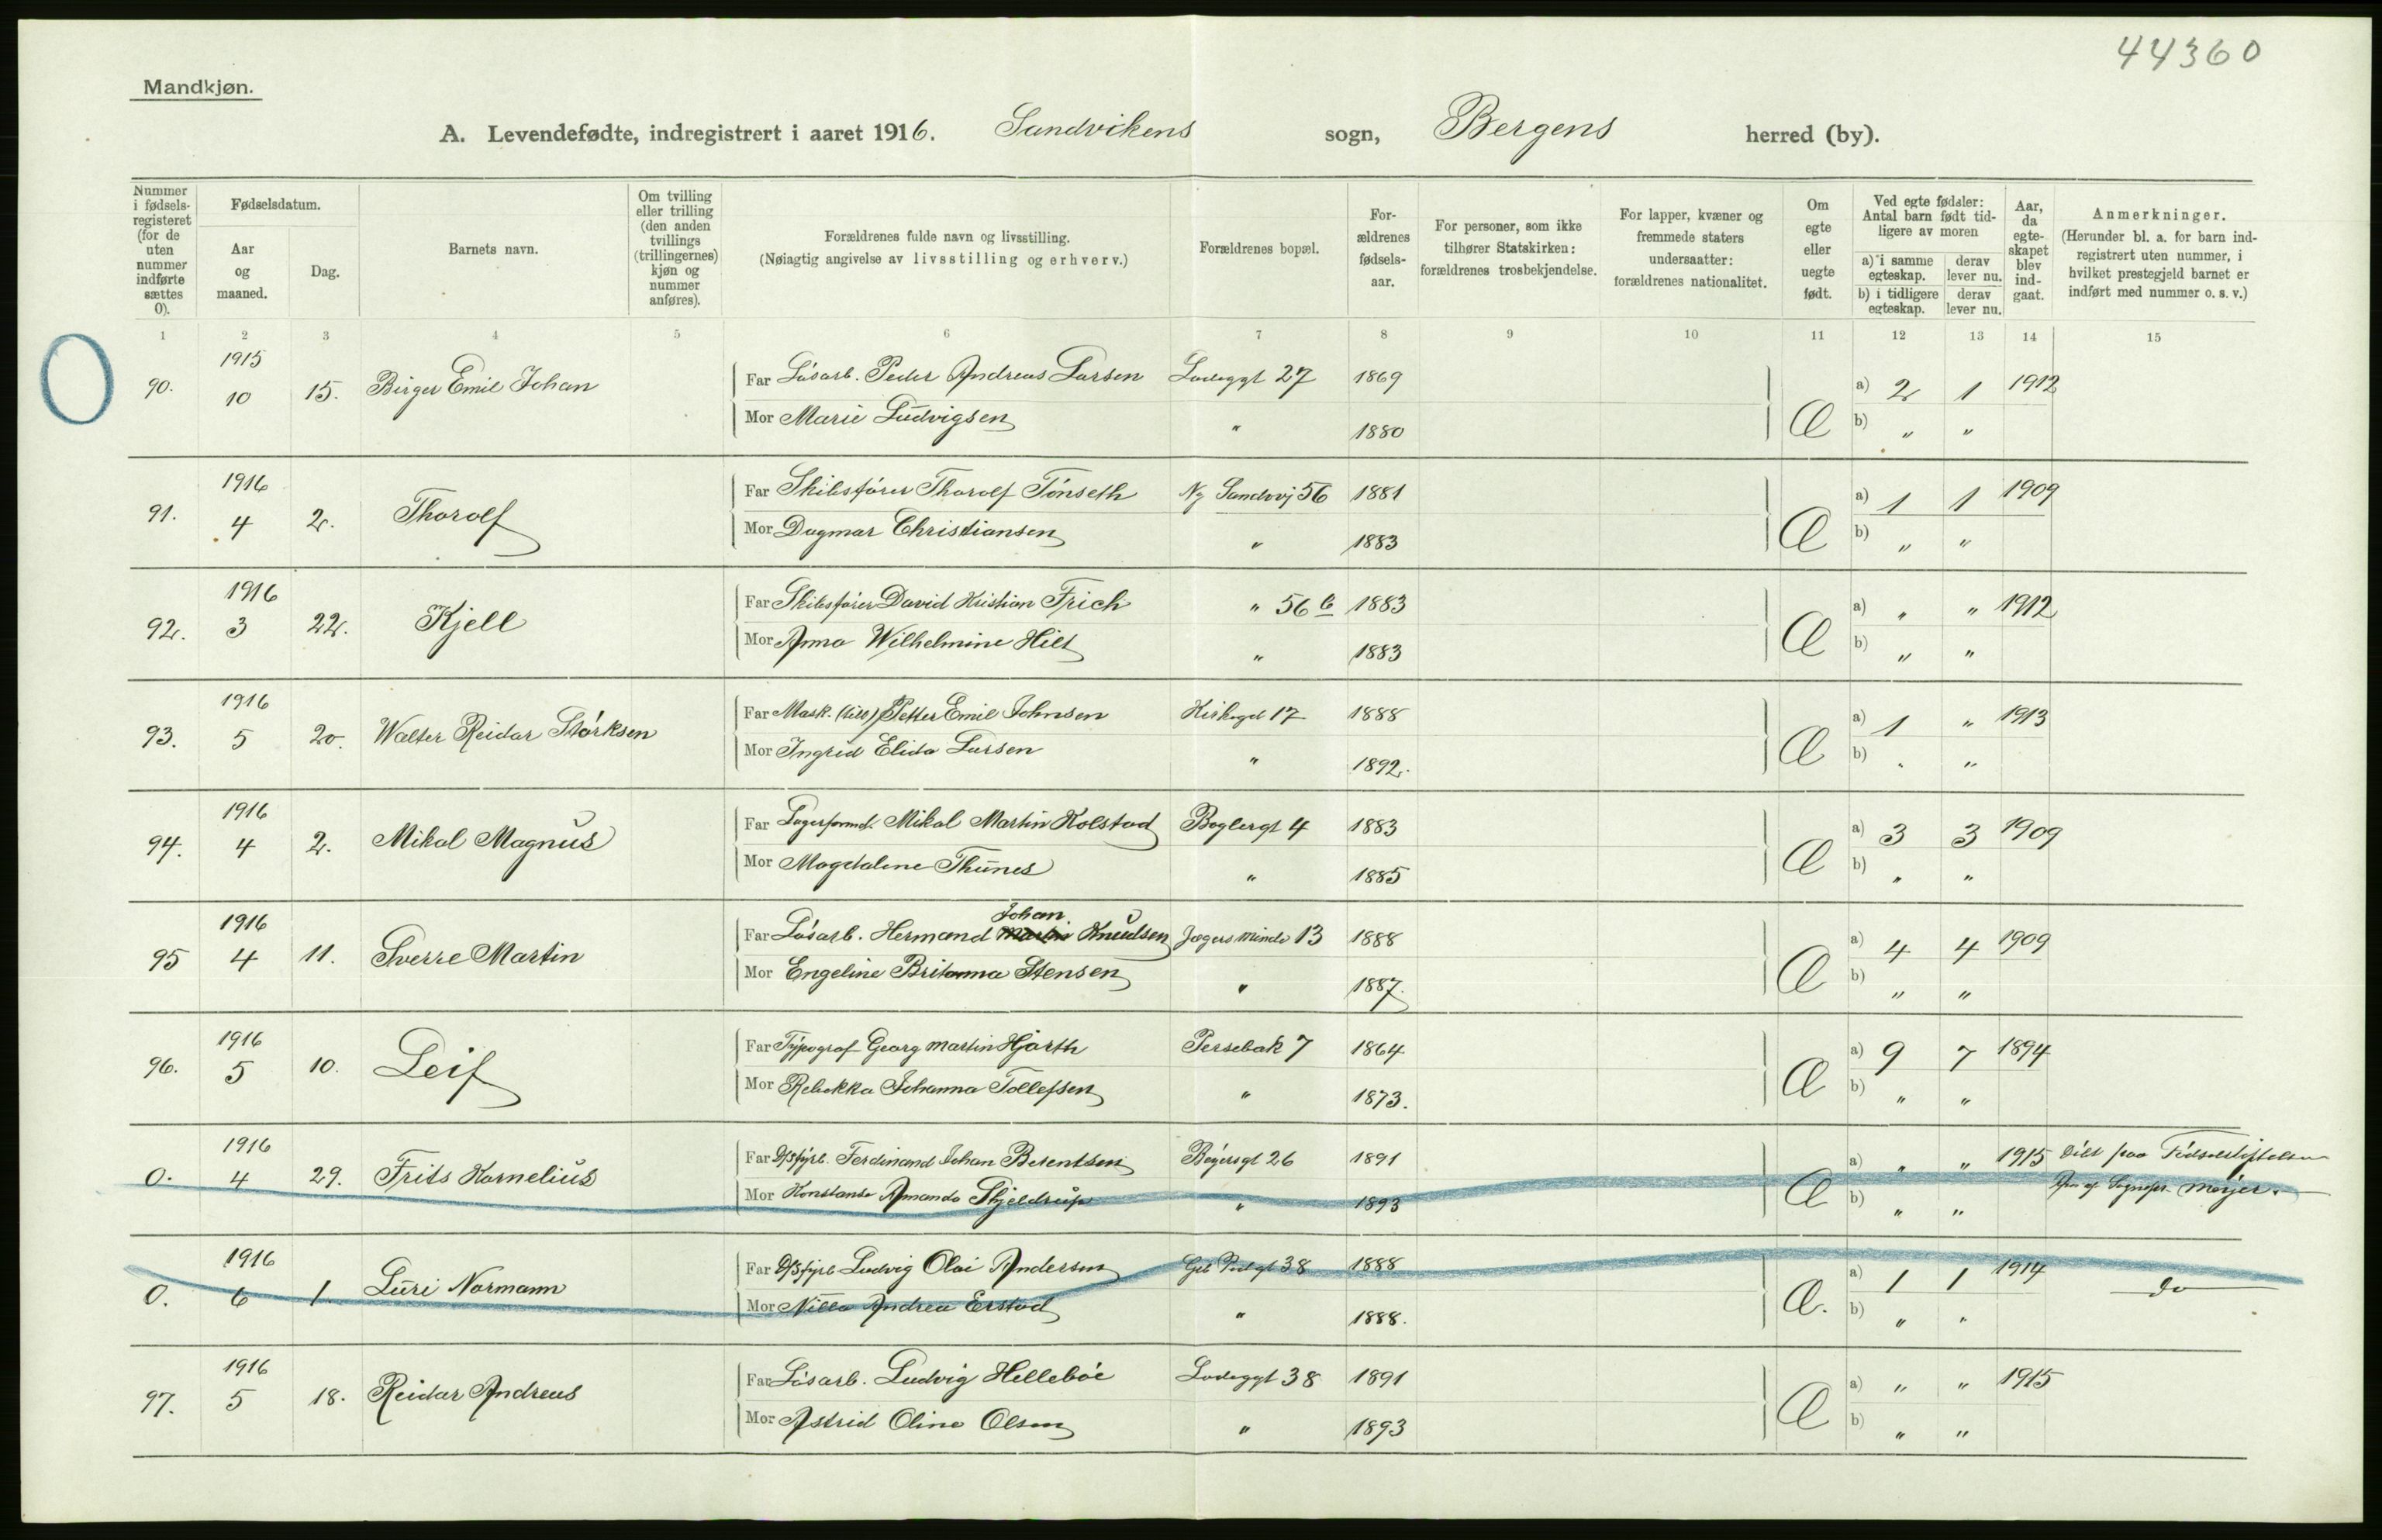 44360
Mandkjøn.
A. Levendefødte, indregistrert i aaret 1916. Sandvikens sogn, Bergens herred (by).
Nummer i fødsels-registeret (for de uten nummer indførte sættes 0).
Fødselsdatum.
Aar og maaned.
Dag.
Barnets navn.
Om tvilling eller trilling (den anden tvillings (trillingernes) kjøn og nummer anføres).
Forældrenes fulde navn og livsstilling.
(Nøiagtig angivelse av livsstilling og erhverv.)
Forældrenes bopæl.
For-ældrenes fødsels-aar.
For personer, som ikke tilhører Statskirken: forældrenes trosbekjendelse.
For lapper, kvæner og fremmede staters undersaatter: forældrenes nationalitet.
Om egte eller uegte født.
Ved egte fødsler: Antal barn født tid-ligere av moren
a) i samme egteskap.
derav lever nu.
b) i tidligere egteskap.
derav lever nu.
Aar, da egte-skapet blev ind-gaat.
Anmerkninger.
(Herunder bl. a. for barn ind-registrert uten nummer, i hvilket prestegjeld barnet er indført med nummer o. s. v.)
1 2 3 4 5 6 7 8 9 10 11 12 13 14 15
0
1915
90. 10 15. Birger Emil Johan Far Løsarb. Peder Andreas Larsen Ladeggt 27 1869 a) 2 1 1912
Mor Marie Ludvigsen " 1880 Æ b) " "
1916
91. 4 2. Thorolf Far Skibsfører Thorolf Tønseth Ny Sandvvj 56 1881 a) 1 1 1909
Mor Dagmar Christiansen " 1883 Æ b) " "
1916
92. 3 22. Kjell Far Skibsfører David Kristian Frich " 56 b 1883 a) " " 1912
Mor Anna Wilhelmine Hilt " 1883 Æ b) " "
1916
93. 5 20. Walter Reidar Størksen Far Mask. Petter Emil Johnsen Kirkegt 17 1888 a) 1 " 1913
Mor Ingrid Elida Larsen " 1892. Æ b) " "
1916
94. 4 2. Mikal Magnus Far Lagerformd. Mikal Martin Kolstad Boglergt 4 1883 a) 3 3 1909
Mor Magdalene Thunes " 1885 Æ b) " "
1916
95 4 11. Sverre Martin Far Løsarb. Hermand Johan Knudsen Jægers minde 13 1888 a) 4 4 1909
Mor Engeline Britanna Stensen " 1887. Æ b) " "
1916
96. 5 10. Leif Far Typograf Georg Martin Hjorth Persebak 7 1864 a) 9 7 1894
Mor Rebekka Johanna Tollefsen " 1873. Æ b) " "
1916
0. 4 29. Frits Kornelius Far D/S fyrb. Ferdinand Johan Berentsen Bøyersgt 26 1891 a) " " 1915 Døbt paa Fødselsstiftelsen
Mor Konstanse Amanda Skjeldrup " 1893 Æ b) " " af Sognepr. Meyer.
1916
0. 6 1. Luri Normann Far D/S fyrb Ludvig Olai Andersen 38 1888 a) 1 1 1914 do
Mor Nilla Andrea Erstad " 1888. Æ. b) " "
1916
97. 5 18. Reidar Andreas Far Løsarb. Ludvig Hellebøe Ladeggt 38 1891 a) " " 1915
Mor Astrid Oline Olsen " 1893 Æ b) " "